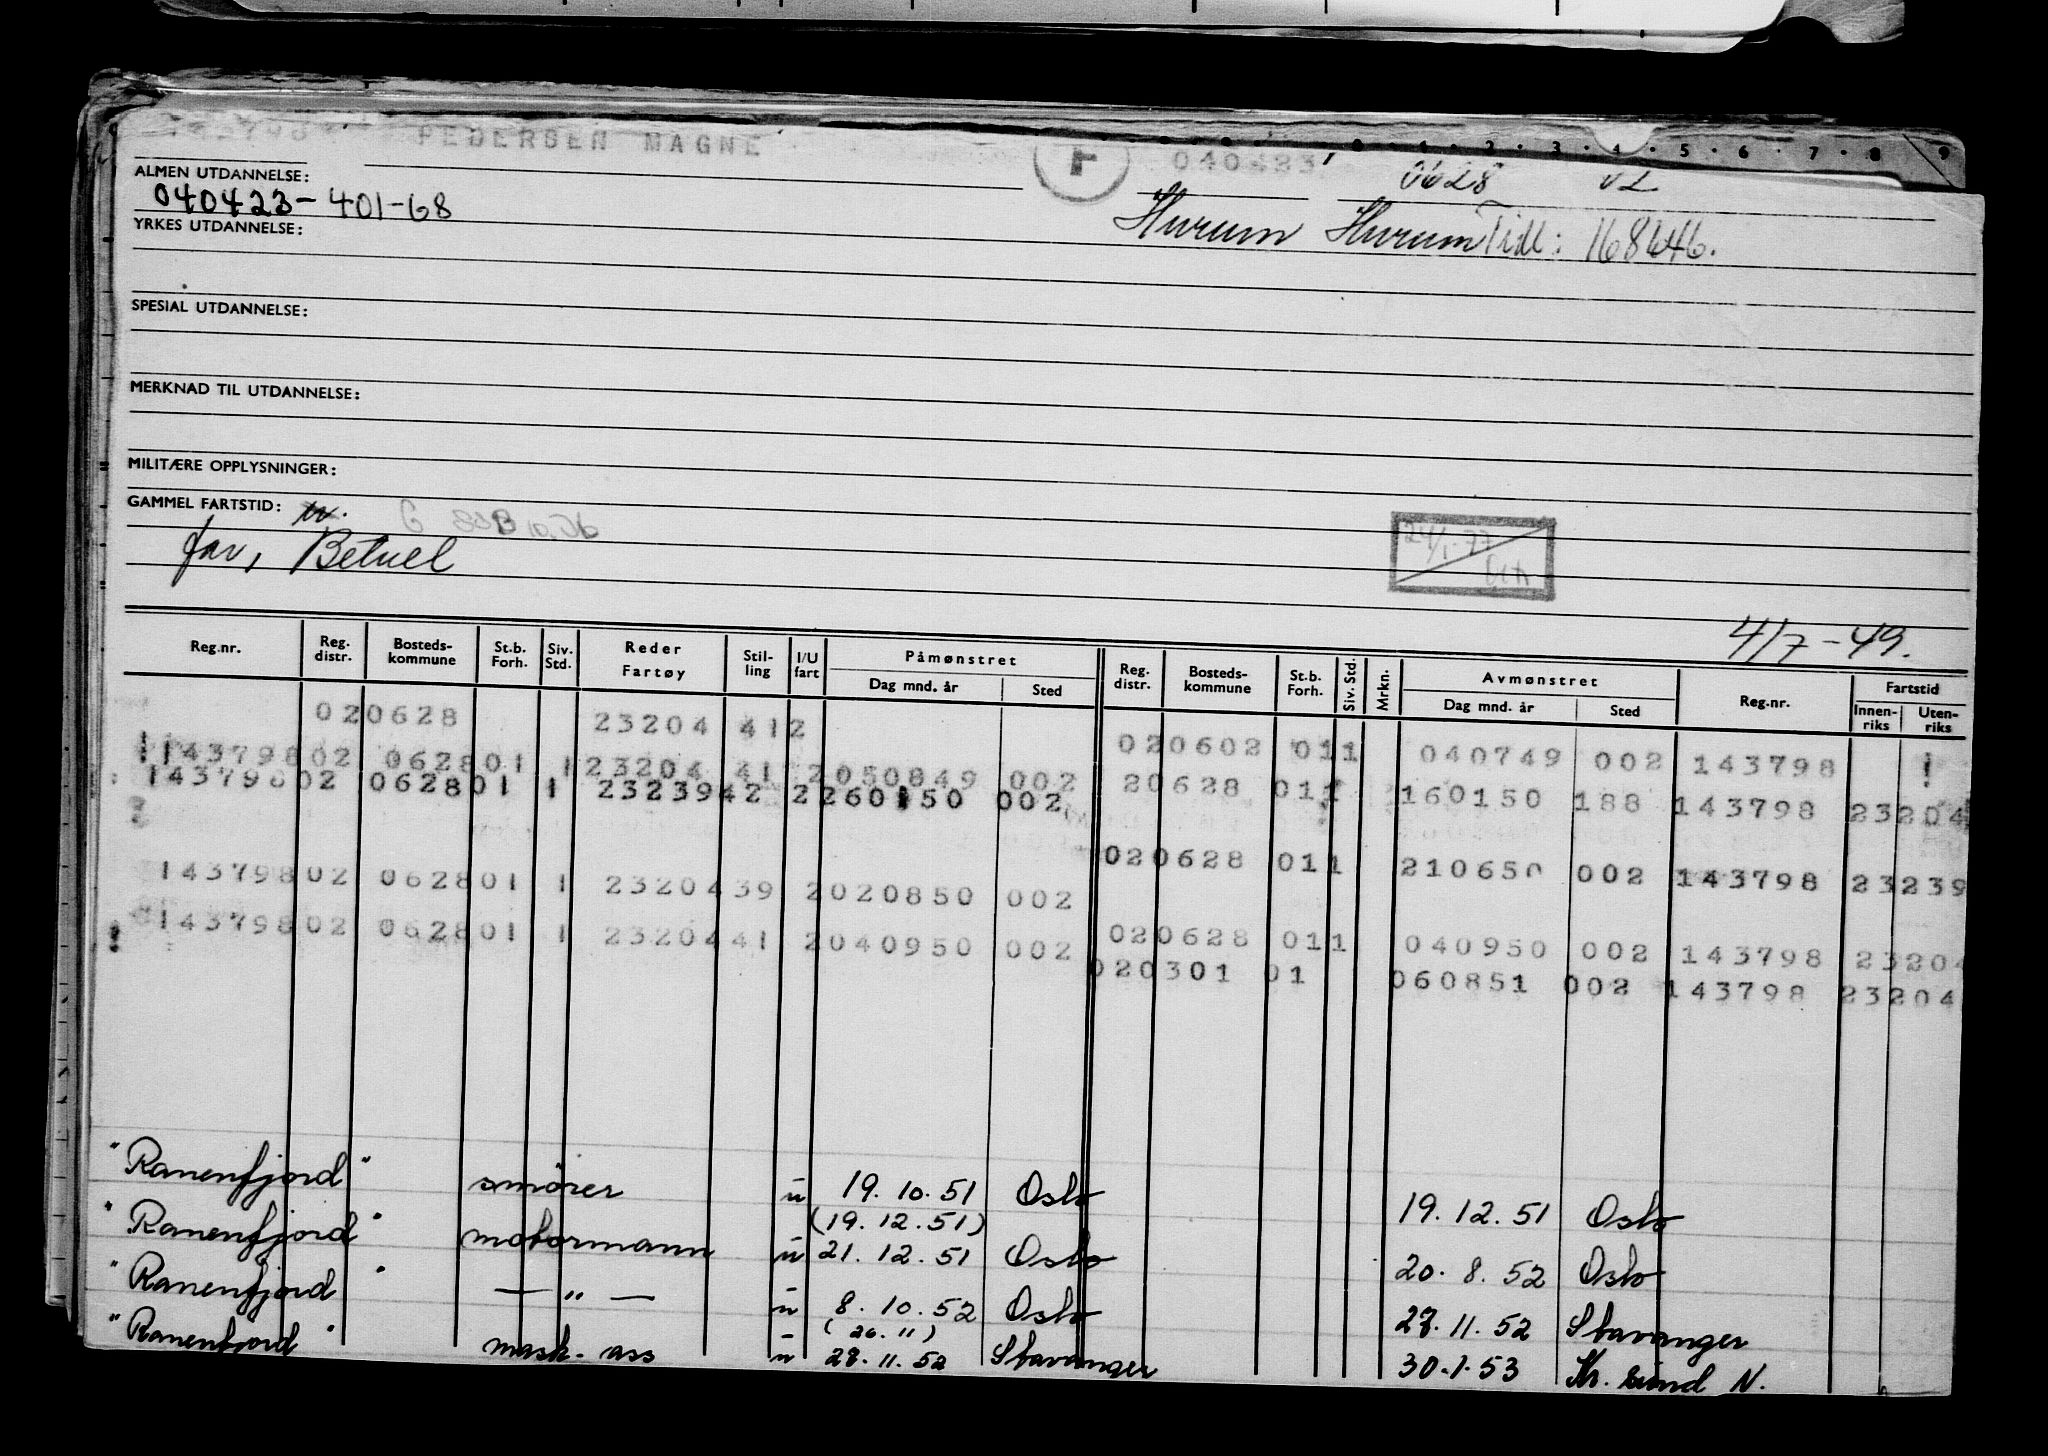 PEDERSEN MAGNE 040423 0628 02
ALMEN UTDANNELSE:
040423-401-68
YRKES UTDANNELSE:
Hurum Hurum Tidl: 168646.
SPESIAL UTDANNELSE:
MERKNAD TIL UTDANNELSE:
MILITÆRE OPPLYSNINGER:
GAMMEL FARTSTID:
far, Betuel
24/1-77
4/7-49.
Reg.nr. Reg. distr. Bosteds-kommune St.b. Forh. Siv. Std. Reder Fartøy Stil-ling I/U fart Påmønstret Dag mnd. år Sted Reg. distr. Bosteds-kommune St.b. Forh. Siv. Std. Mrkn. Avmønstret Dag mnd. år Sted Reg.nr. Fartstid Innen-riks Uten-riks
020628 23204 412 020602 011 040749 002 143798
143798 02 0628 01 1 23204 41 2 050849 002 20628 011 160150 188 143798 23204
143798 02 0628 01 1 23239 42 2 260150 002 020628 011 210650 002 143798 23239
143798 02 0628 01 1 23204 39 2 020850 002 020628 011 040950 002 143798 23204
143798 02 0628 01 1 23204 41 2 040950 002 020301 01 060851 002 143798 23204
"Ranenfjord" smører u 19.10.51 Oslo 19.12.51 Oslo
(19.12.51)
"Ranenfjord" motormann u 21.12.51 Oslo 20.8.52 Oslo
"Ranenfjord" — " — u 8.10.52 Oslo 27.11.52 Stavanger
(26.11)
"Ranenfjord" mask. ass u 28.11.52 Stavanger 30.1.53 Kr. sund N.